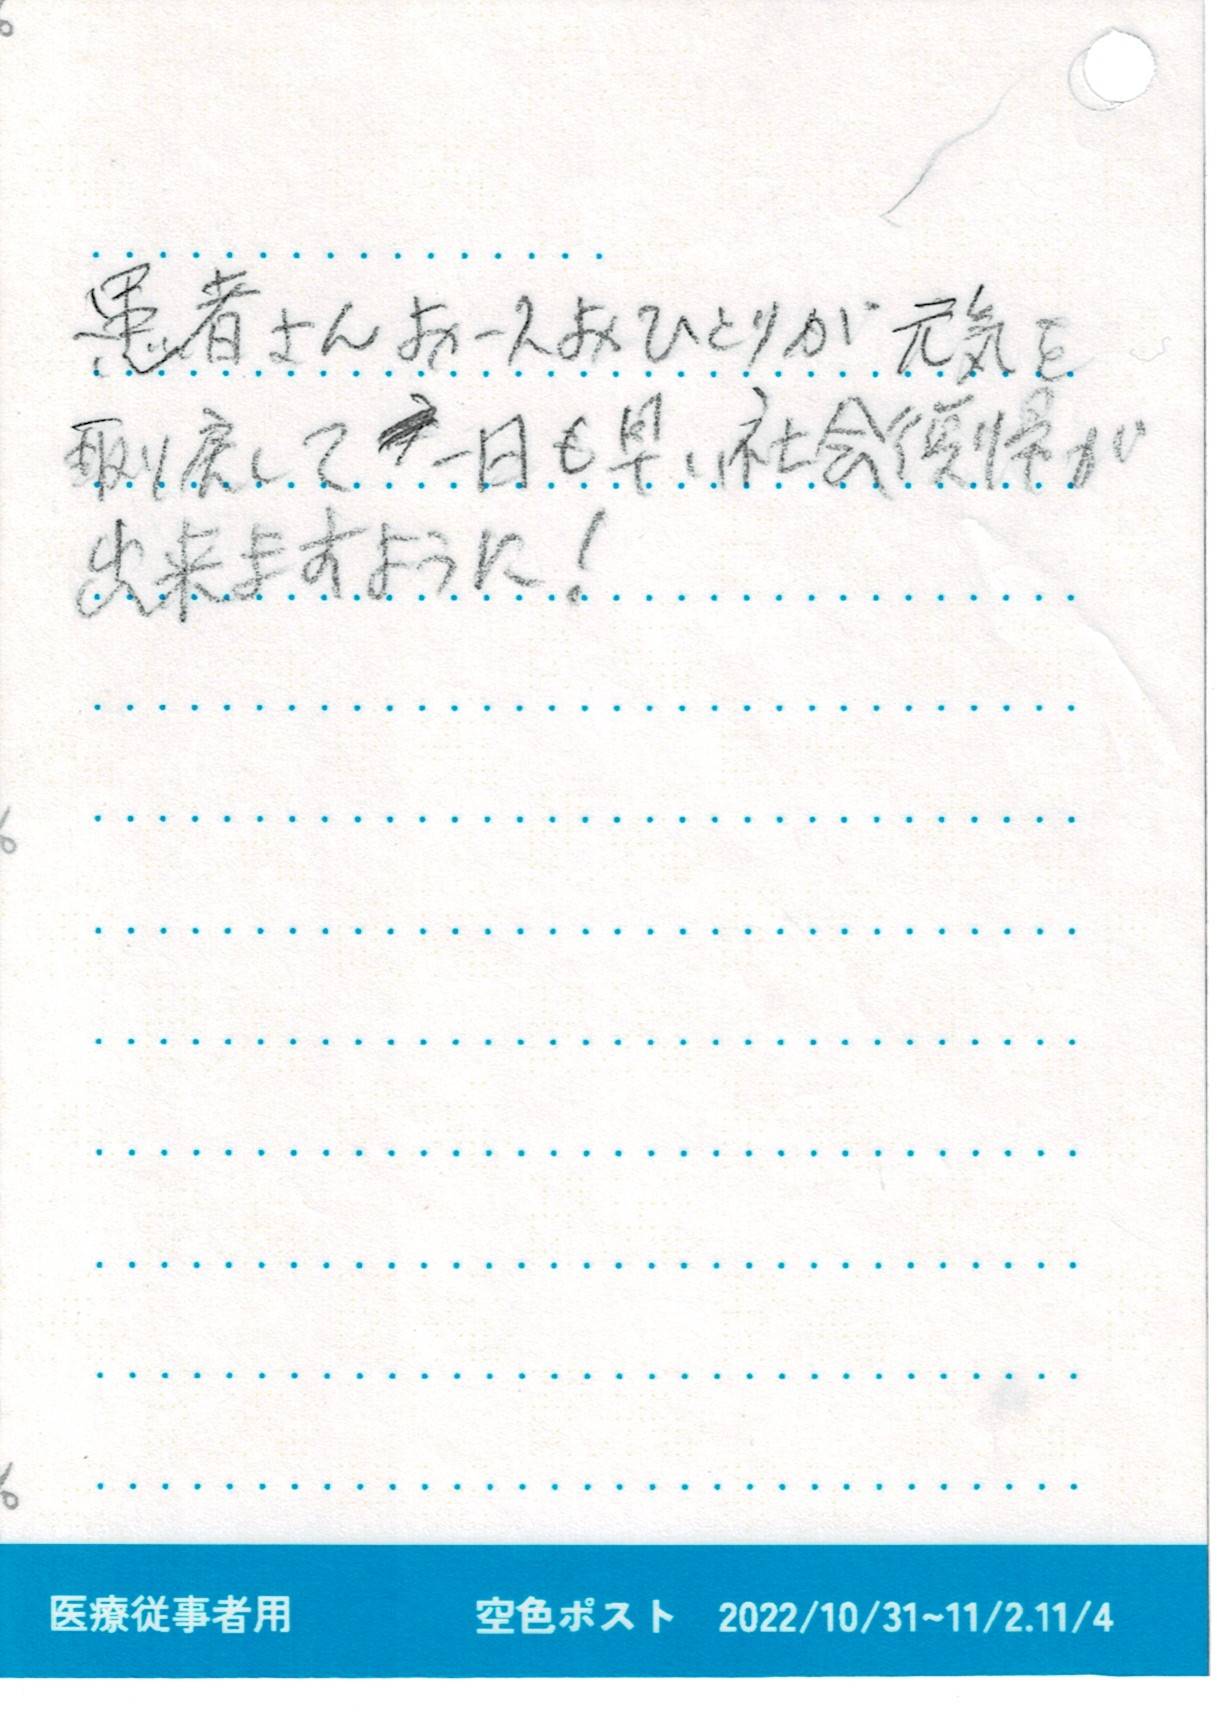 患者さんお一人おひとりが元気を
取り戻して一日も早い社会復帰が
出来ますように!
医療従事者用 空色ポスト 2022/10/31~11/2.11/4